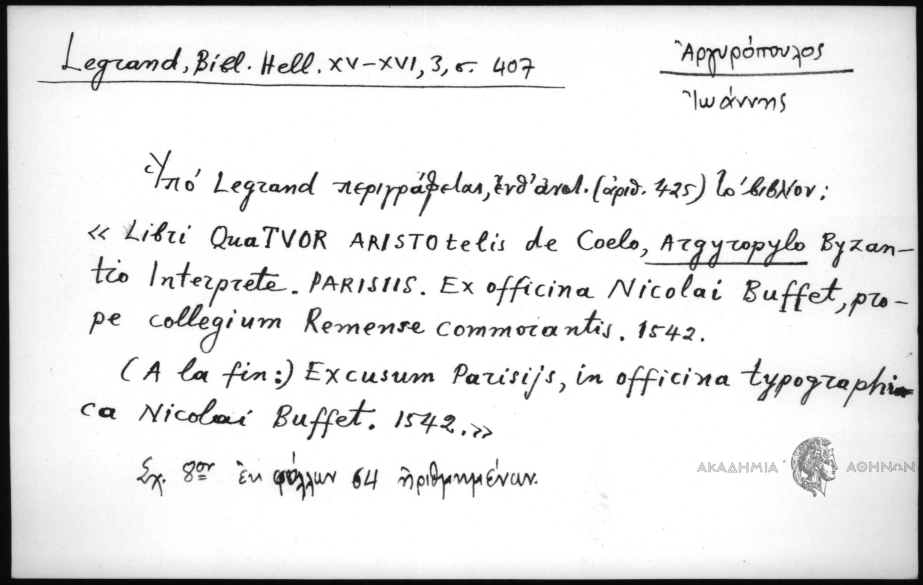 Legrand, Bibl. Hell. XV–XVI, 3, σ. 407
Ἀργυρόπουλος
Ἰωάννης
Ὑπό Legrand περιγράφεται, ἔνθ' ἀνωτ. (ἀριθ. 425) τό βιβλίον:
« Libri QuaTVOR ARISTOtelis de Coelo, Argyropylo Byzan–
tio Interprete. PARISIIS. Ex officina Nicolai Buffet, pro–
pe collegium Remense commorantis. 1542.
(A la fin:) Excusum Parisijs, in officina typographi
ca Nicolai Buffet. 1542.»
Σχ. 8ον ἐκ φύλλων 64 ἠριθμημένων.
ΑΚΑΔΗΜΙΑ ΑΘΗΝΩΝ